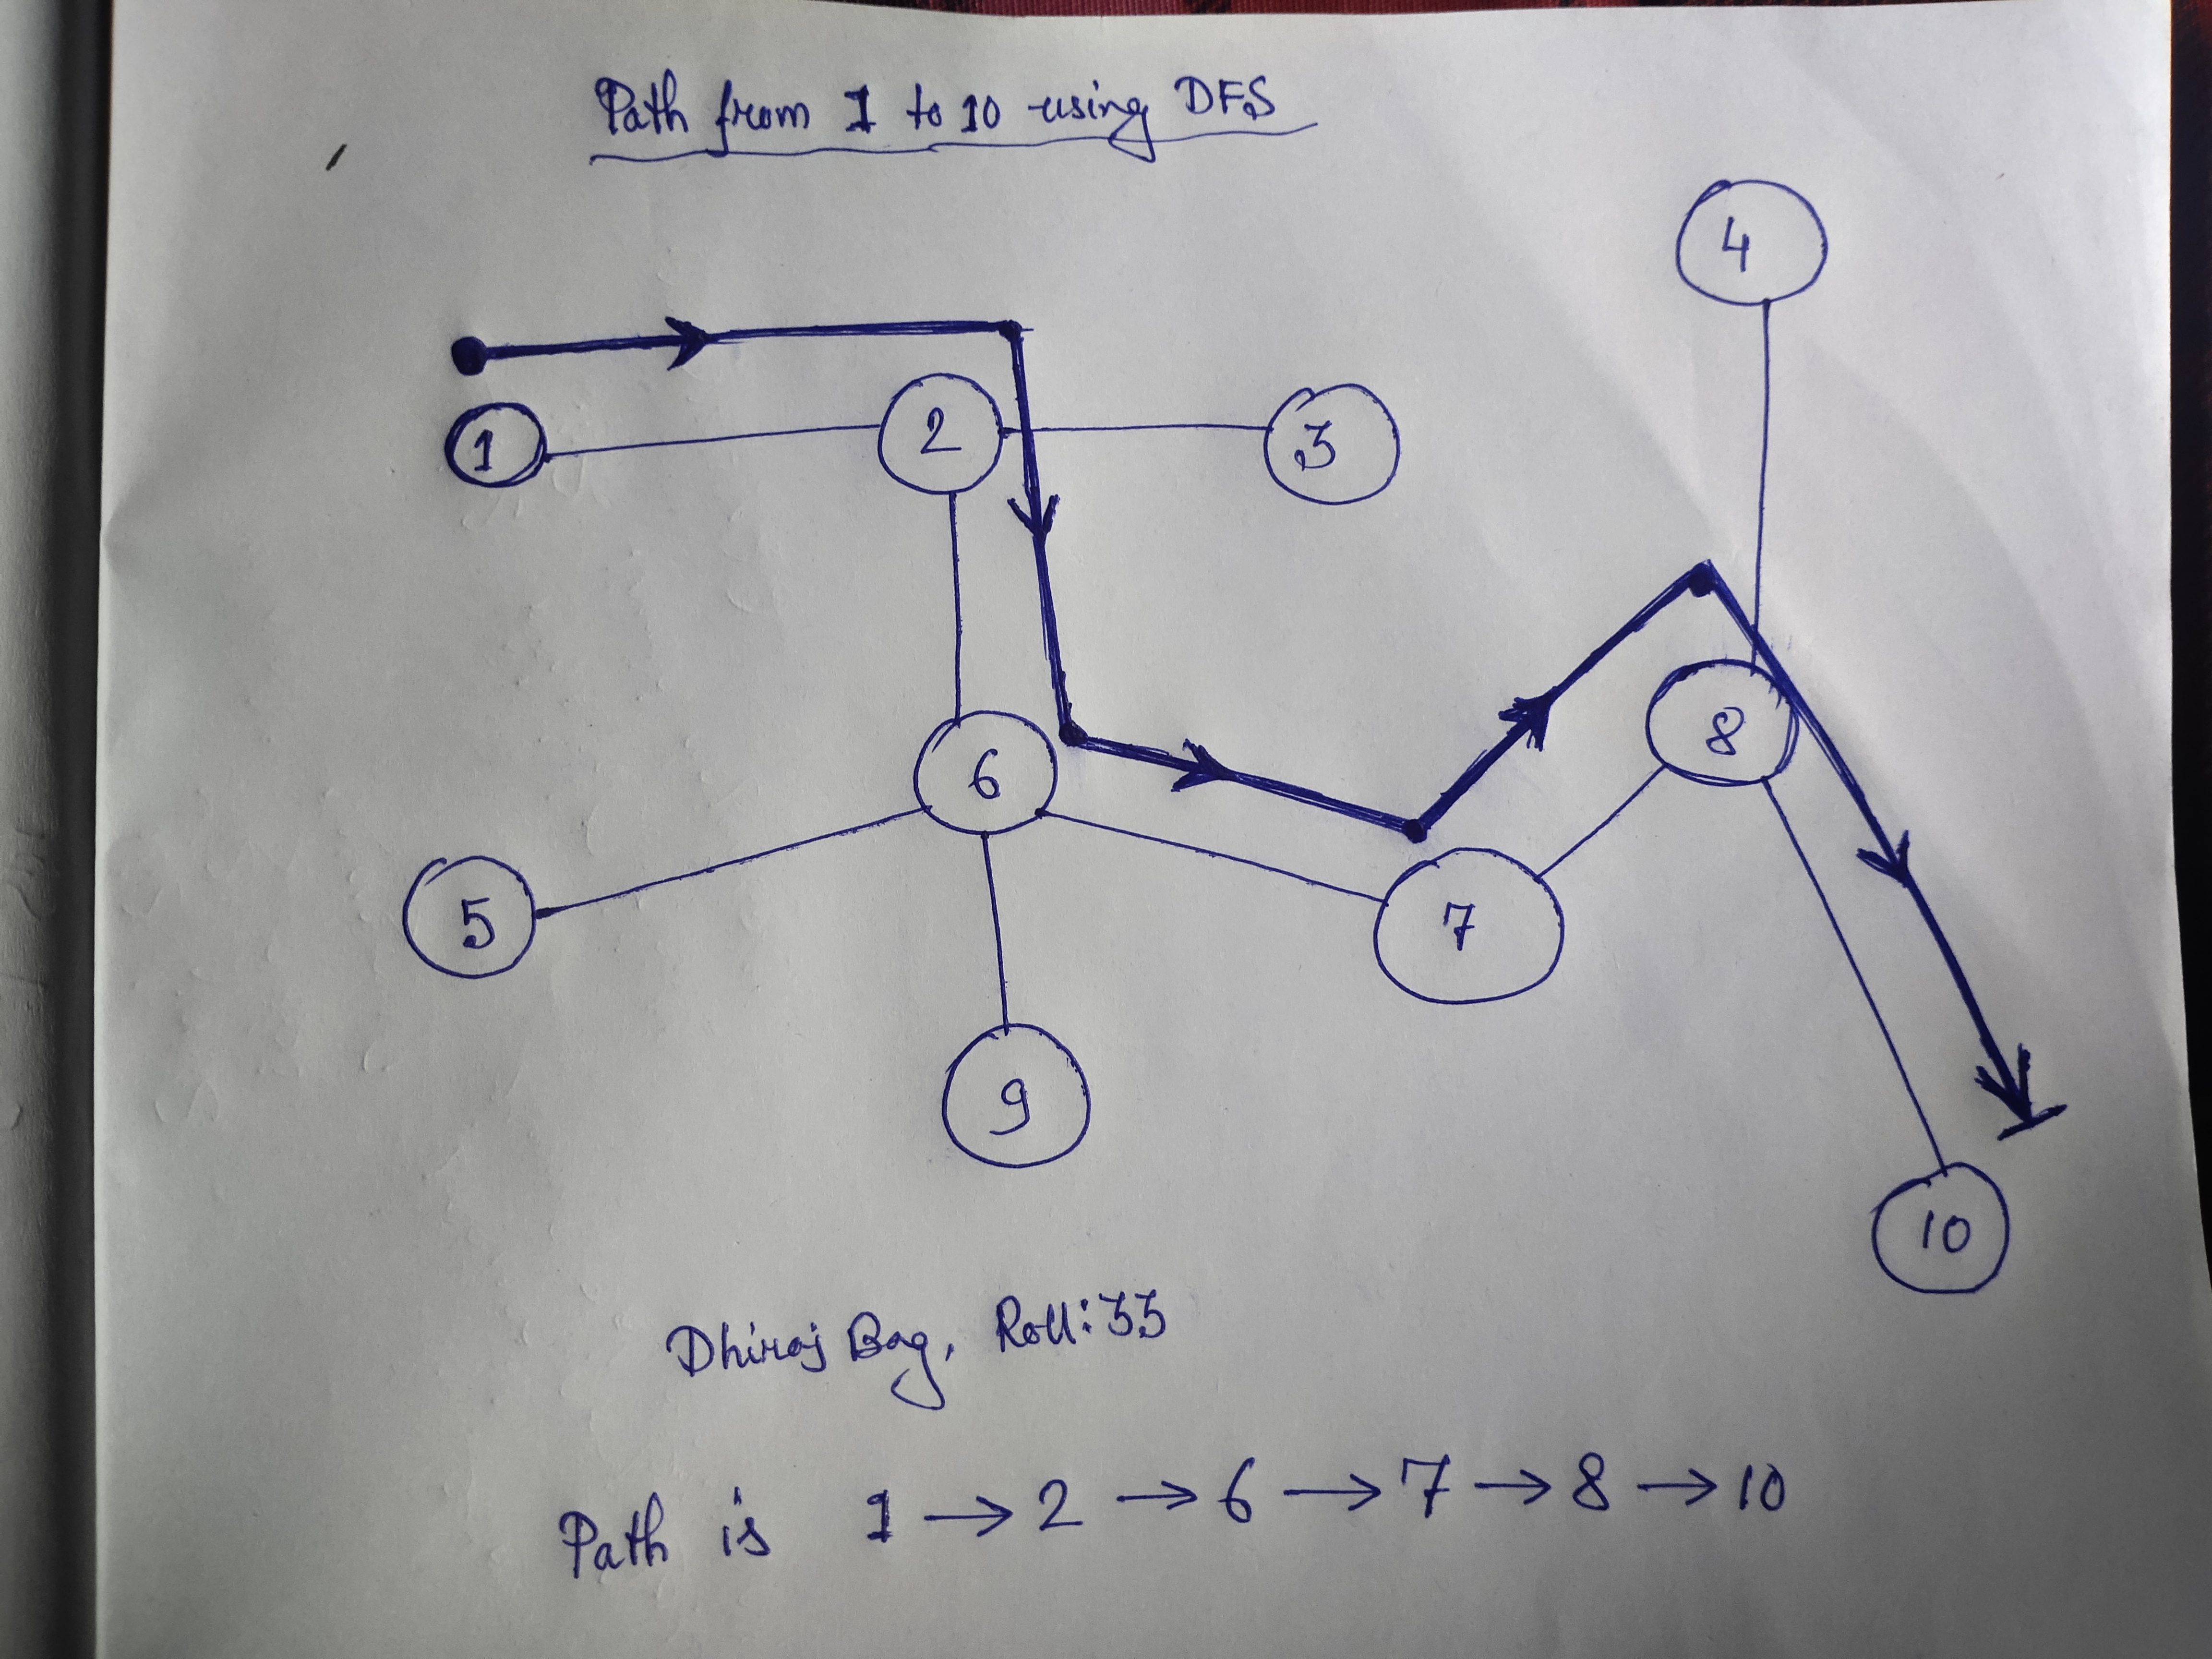 Path from 1 to 10 using DFS
4
1
2
3
8
6
5
7
9
10
Dhiraj Bag, Roll: 33
Path is 1 → 2 → 6 → 7 → 8 → 10